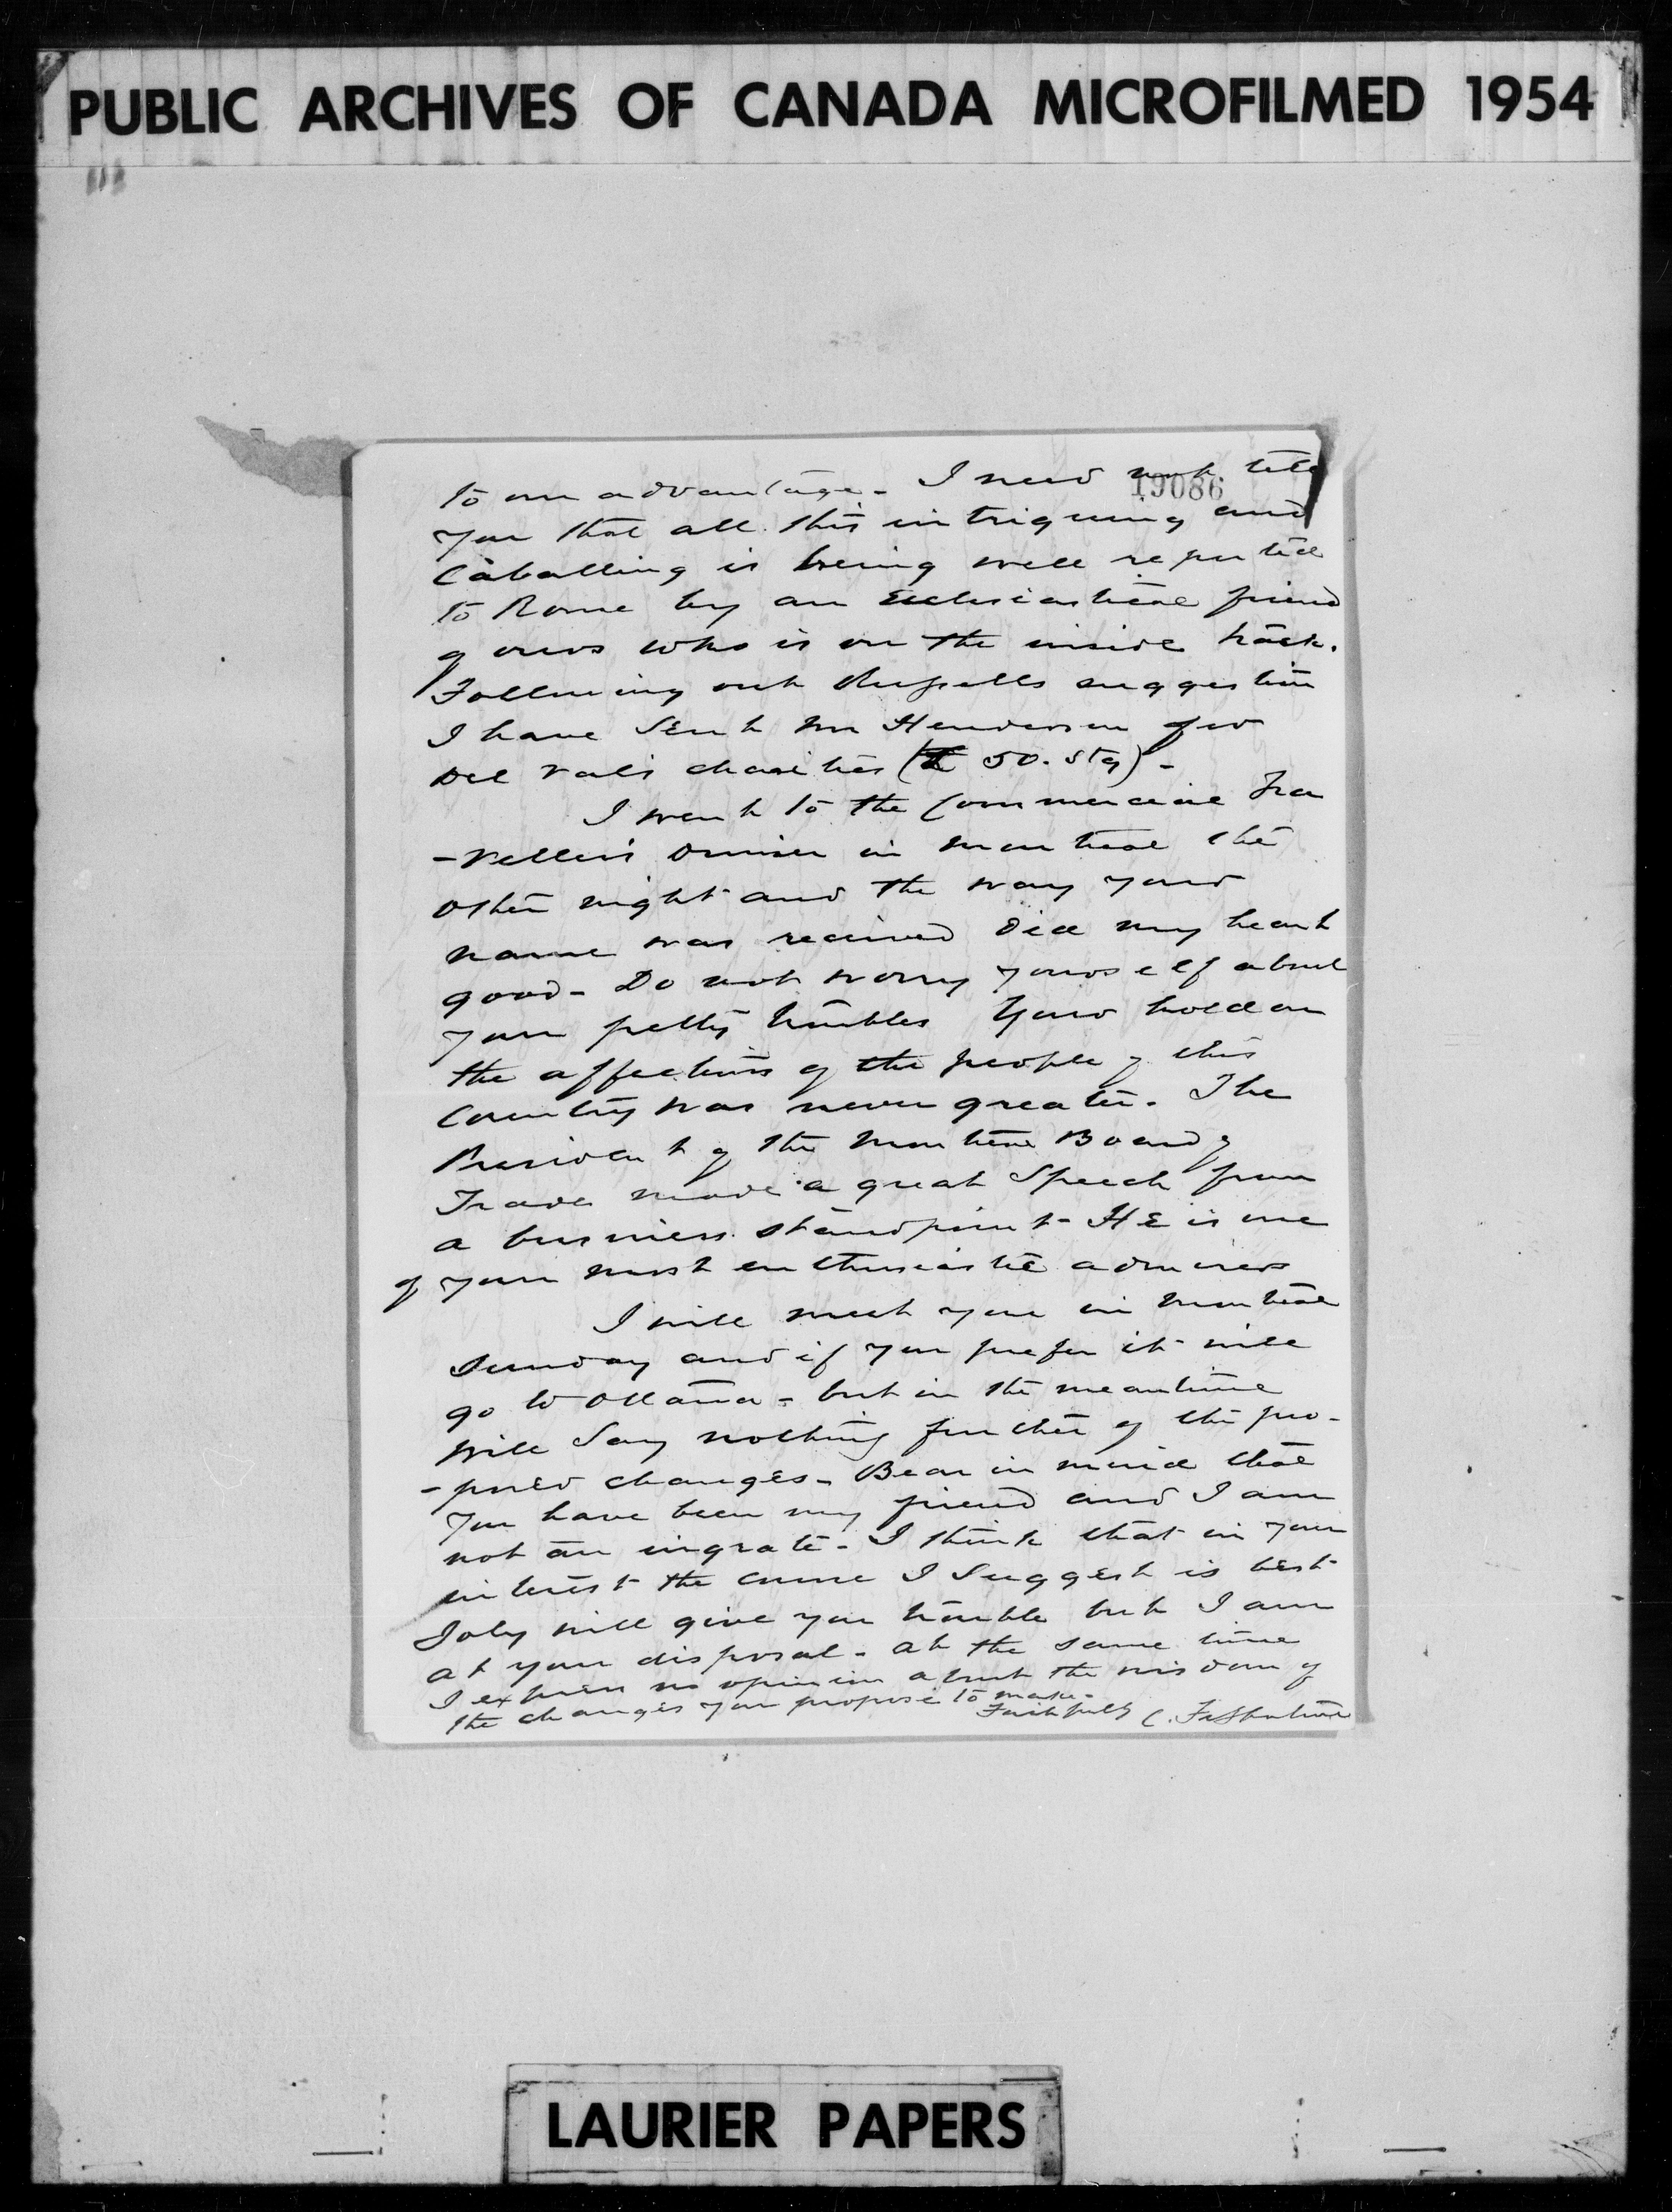 PUBLIC ARCHIVES OF CANADA MICROFILMED 1954
19086
to our advantage - I need not tell
you that all this intriguing and
Caballing is being well reported
to Rome by an Ecclesiastical friend
of ours who is on the inside track.
Following out Russells suggestion
I have sent Mr Henderson for
Del Val's charities (£ 50. Stg) -
I went to the Commercial Tra
-vellers Dinner in Montreal the
other night and the way your
name was received did my heart
good - Do not worry yourself about
your petty troubles Your hold on
the affections of the people of this
Country was never greater. The
President of the Montreal Board of
Trade made a great Speech from
a business standpoint - He is one
of your most enthusiastic admirers
I will meet you in Montreal
Sunday and if you prefer it will
go to Ottawa - but in the meantime
will say nothing further of the pro-
-posed changes - Bear in mind that
you have been my friend and I am
not an ingrate - I think that in your
interest the course I suggest is best
Joly will give you trouble but I am
at your disposal - at the same time
I express no opinion about the wisdom of
the changes you propose to make -
Faithfully C. Fitzpatrick
LAURIER PAPERS